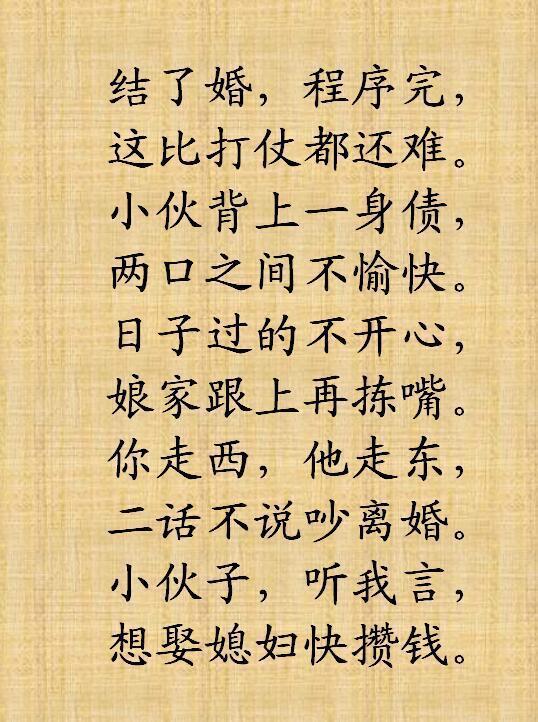 结了婚，程序完，
这比打仗都还难。
小伙背上一身债，
两口之间不愉快。
日子过的不开心，
娘家跟上再拣嘴。
你走西，他走东，
二话不说吵离婚。
小伙子，听我言，
想娶媳妇快攒钱。